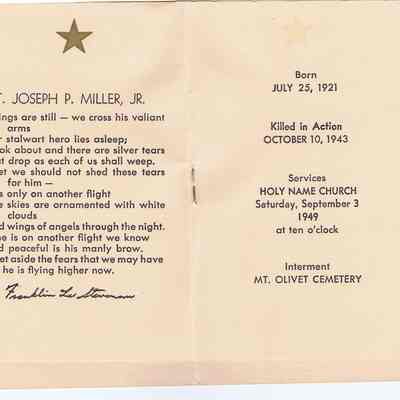 T. JOSEPH P. MILLER, JR.
ings are still — we cross his valiant
arms
r stalwart hero lies asleep;
ok about and there are silver tears
t drop as each of us shall weep.
et we should not shed these tears
for him —
s only on another flight
e skies are ornamented with white
clouds
d wings of angels through the night.
e is on another flight we know
d peaceful is his manly brow.
et aside the fears that we may have
he is flying higher now.
Franklin Lee Stevenson
Born
JULY 25, 1921
Killed in Action
OCTOBER 10, 1943
Services
HOLY NAME CHURCH
Saturday, September 3
1949
at ten o'clock
Interment
MT. OLIVET CEMETERY